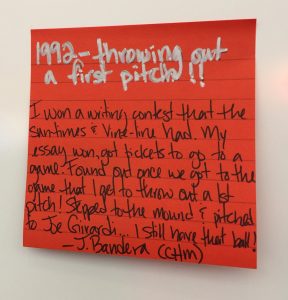 1992 – throwing out
a first pitch!!
I won a writing contest that the
Sun-Times & Vine-line had. My
essay won, got tickets to go to a
game. Found out once we got to the
game that I get to throw out a 1st
pitch! Stepped to the mound & pitched
to Joe Girardi... I still have that ball!
– J. Bandera (CHM)